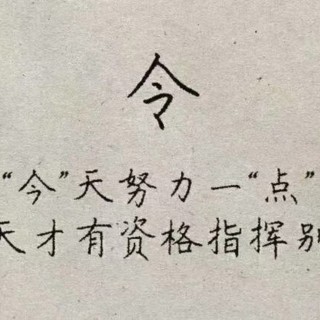 令
“今”天努力一“点”
天才有资格指挥别